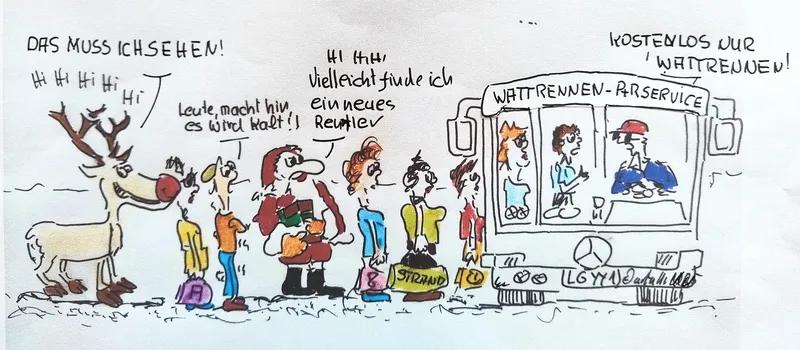 DAS MUSS ICH SEHEN!
Hi Hi Hi Hi
Hi
Leute, macht hin,
es wird kalt!!
Hi HiHi
Vielleicht finde ich
ein neues
Rentier
KOSTENLOS NUR
WATTRENNEN!
WATTRENNEN-P&RSERVICE
A
8
STRAND
LGYY1